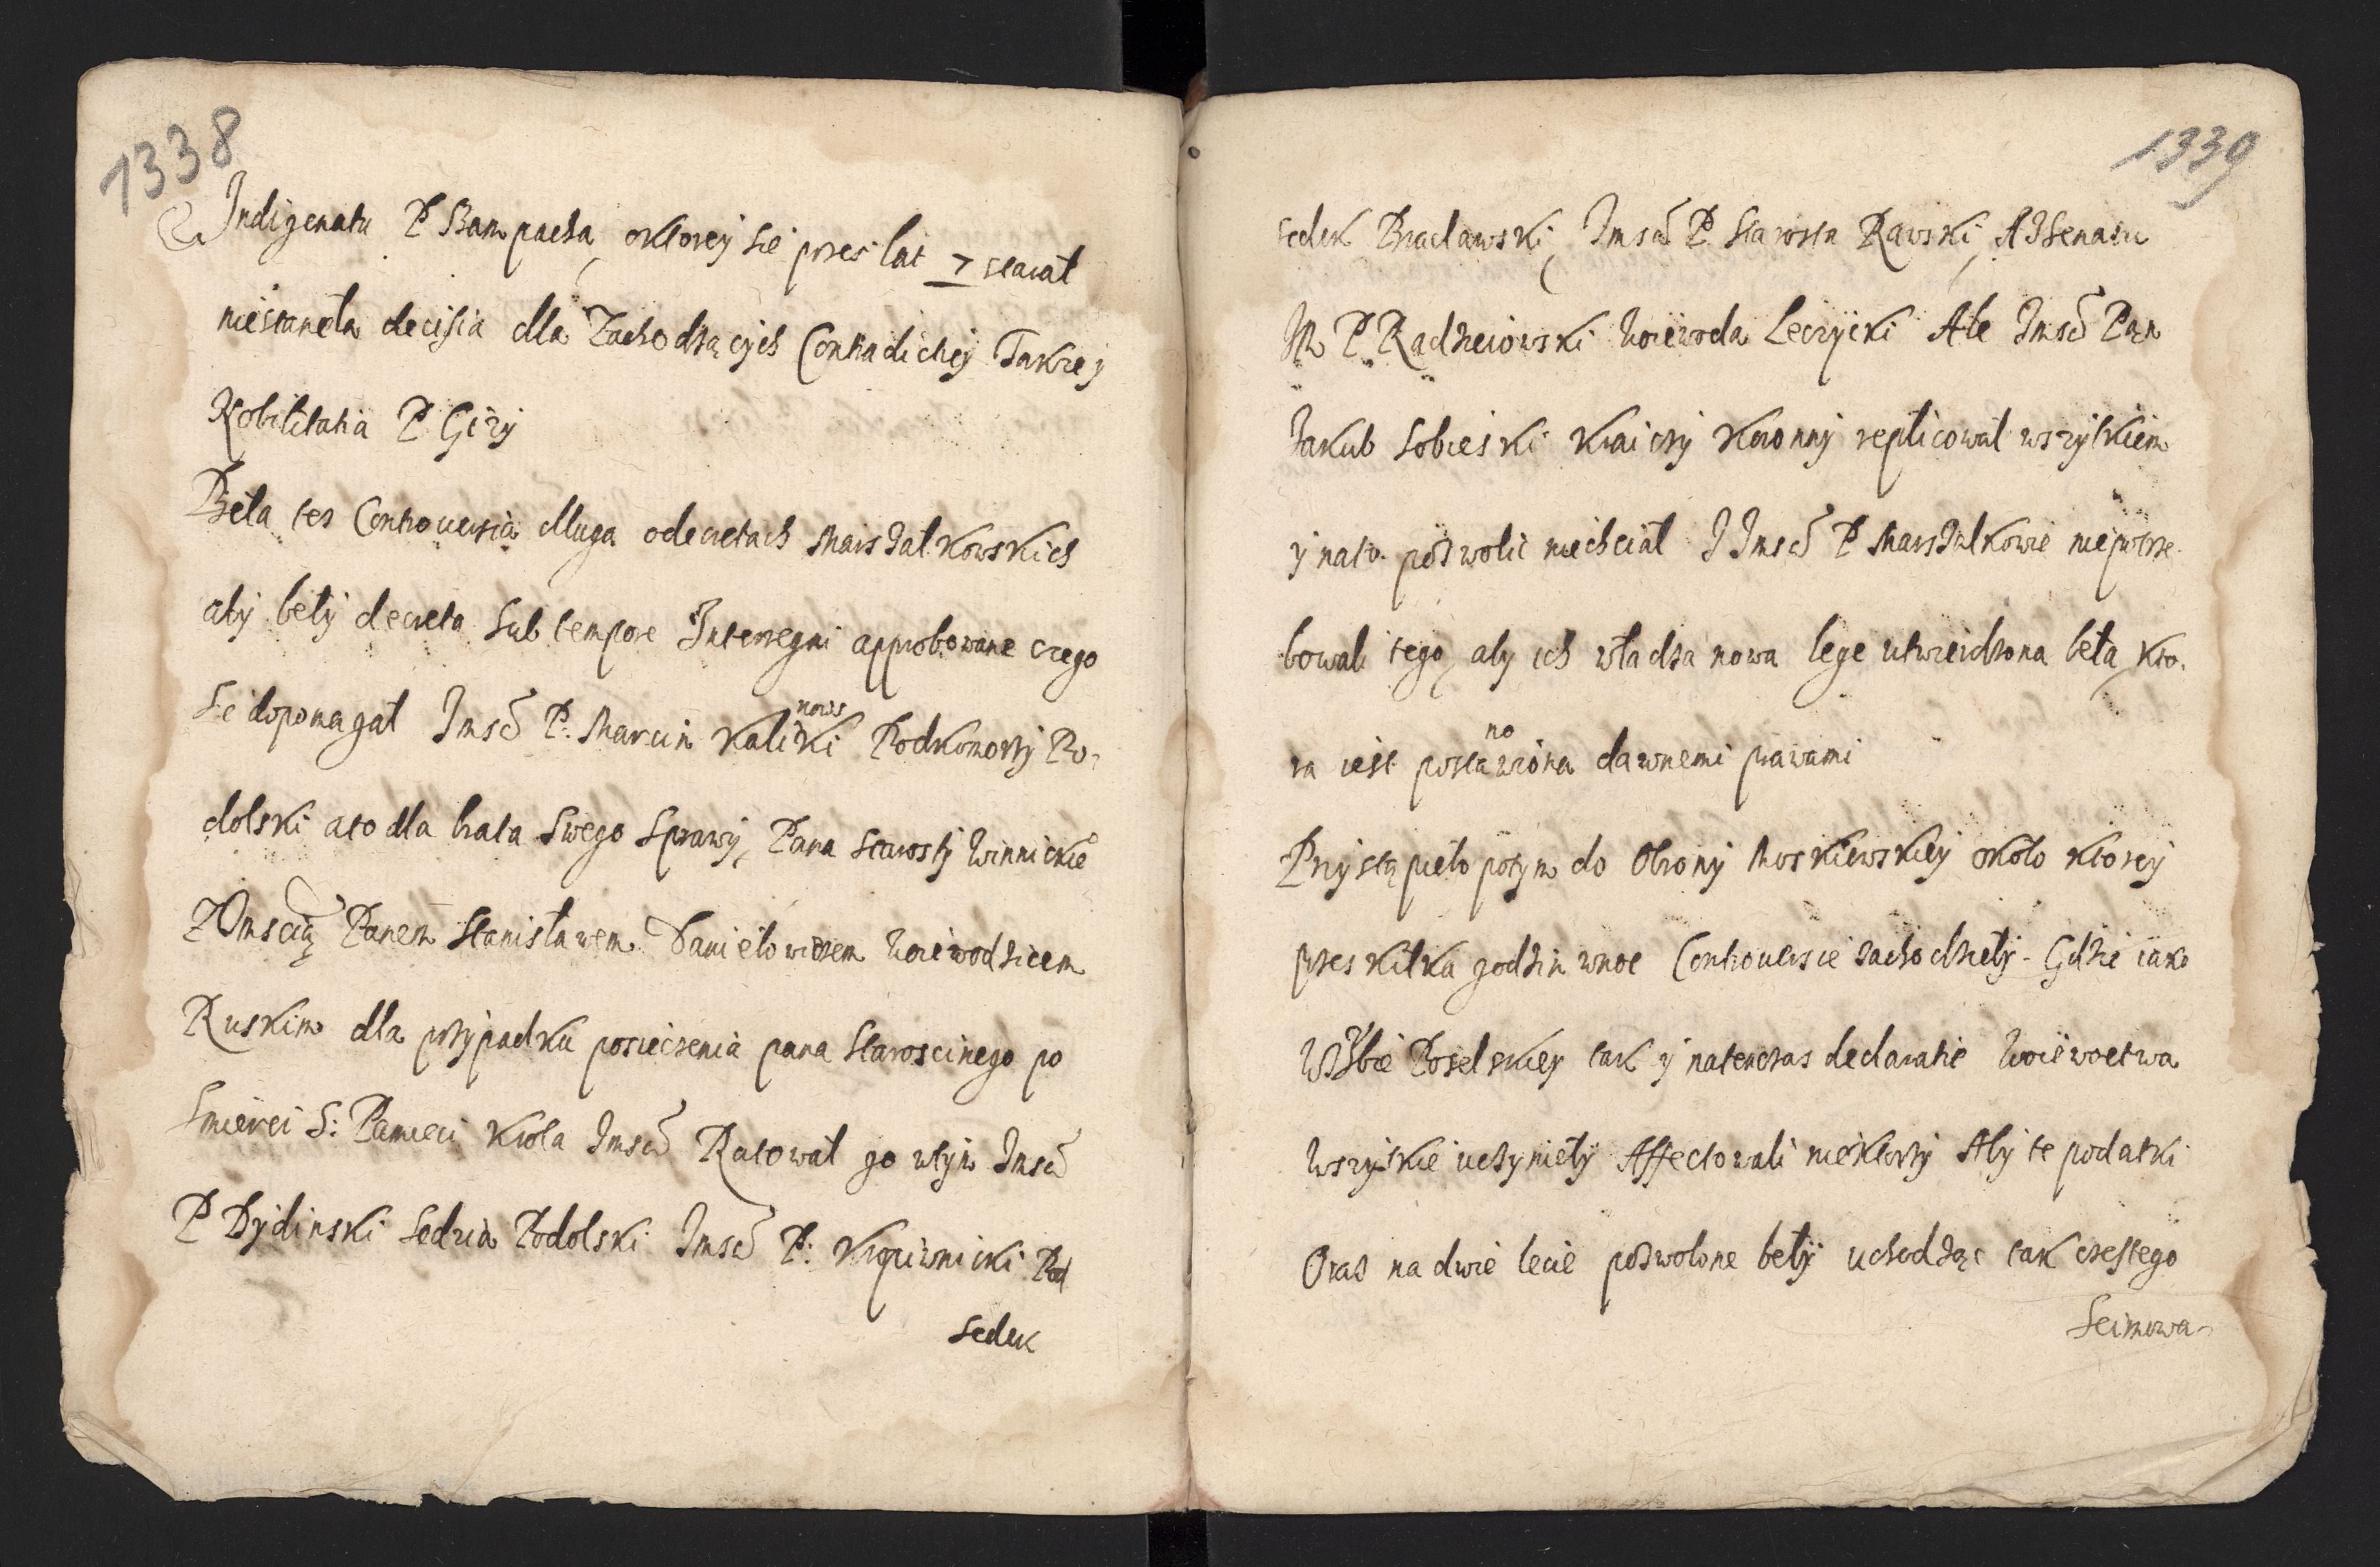 1338
Indigenatu P Bampacha, oktorey sie przes lat 7 starał
niestaneła decisia dla Zachodzących Contradictiy Takzey
Nobilitatia P Gizy
Beła tes Controuersia dluga odecretach Marszałkowskich
aby beły decreta Sub tempore Interregni approbowane czego
Sie dopomagał Imsc P: Marcin Kalinowski Podkomorzy Po-
dolski ato dla brata Swego Sprawy, Pana Starosty Winnickie°
Z Imscią Panem Stanisławem Daniełowiczem Woiewodzicem
Ruskim dla przypadku posieczenia pana Staroscinego po
Smierci S: Pamieci Krola Imsci Ratował go wtym Imsc
P Dydinski Sedzia Podolski Imsc P: Kropiwnicki Pod
Sedek
1339
sedek Bracławski, Imsc P Starosta Rawski, A z Senatu
IM P Radzieiowski Woiewoda Leczycki Ale Imsc Pan
Iakub Sobieski Kraiczy Koronny replicował wszytkiem
y nato pozwolic niechciał I Imsc P Marszałkowie niepotrze-
bowali tego, aby ich władza nowa lege utwierdzona beła, kto-
ra iest postanowiona dawnemi prawami
Przystąpieło potym do Obrony Moskiewskiey około ktorey
przes kilka godzin wnoc Controuersie zachodzieły. Gdzie iako
W Izbie Poselskiey tak y natenczas declaratie Woiewoctwa
Wszytkie uczynieły Affectowali niektorzy Aby te podatki
Oraz na dwie lecie pozwolone beły uchodząc tak czestego
Seimowa-